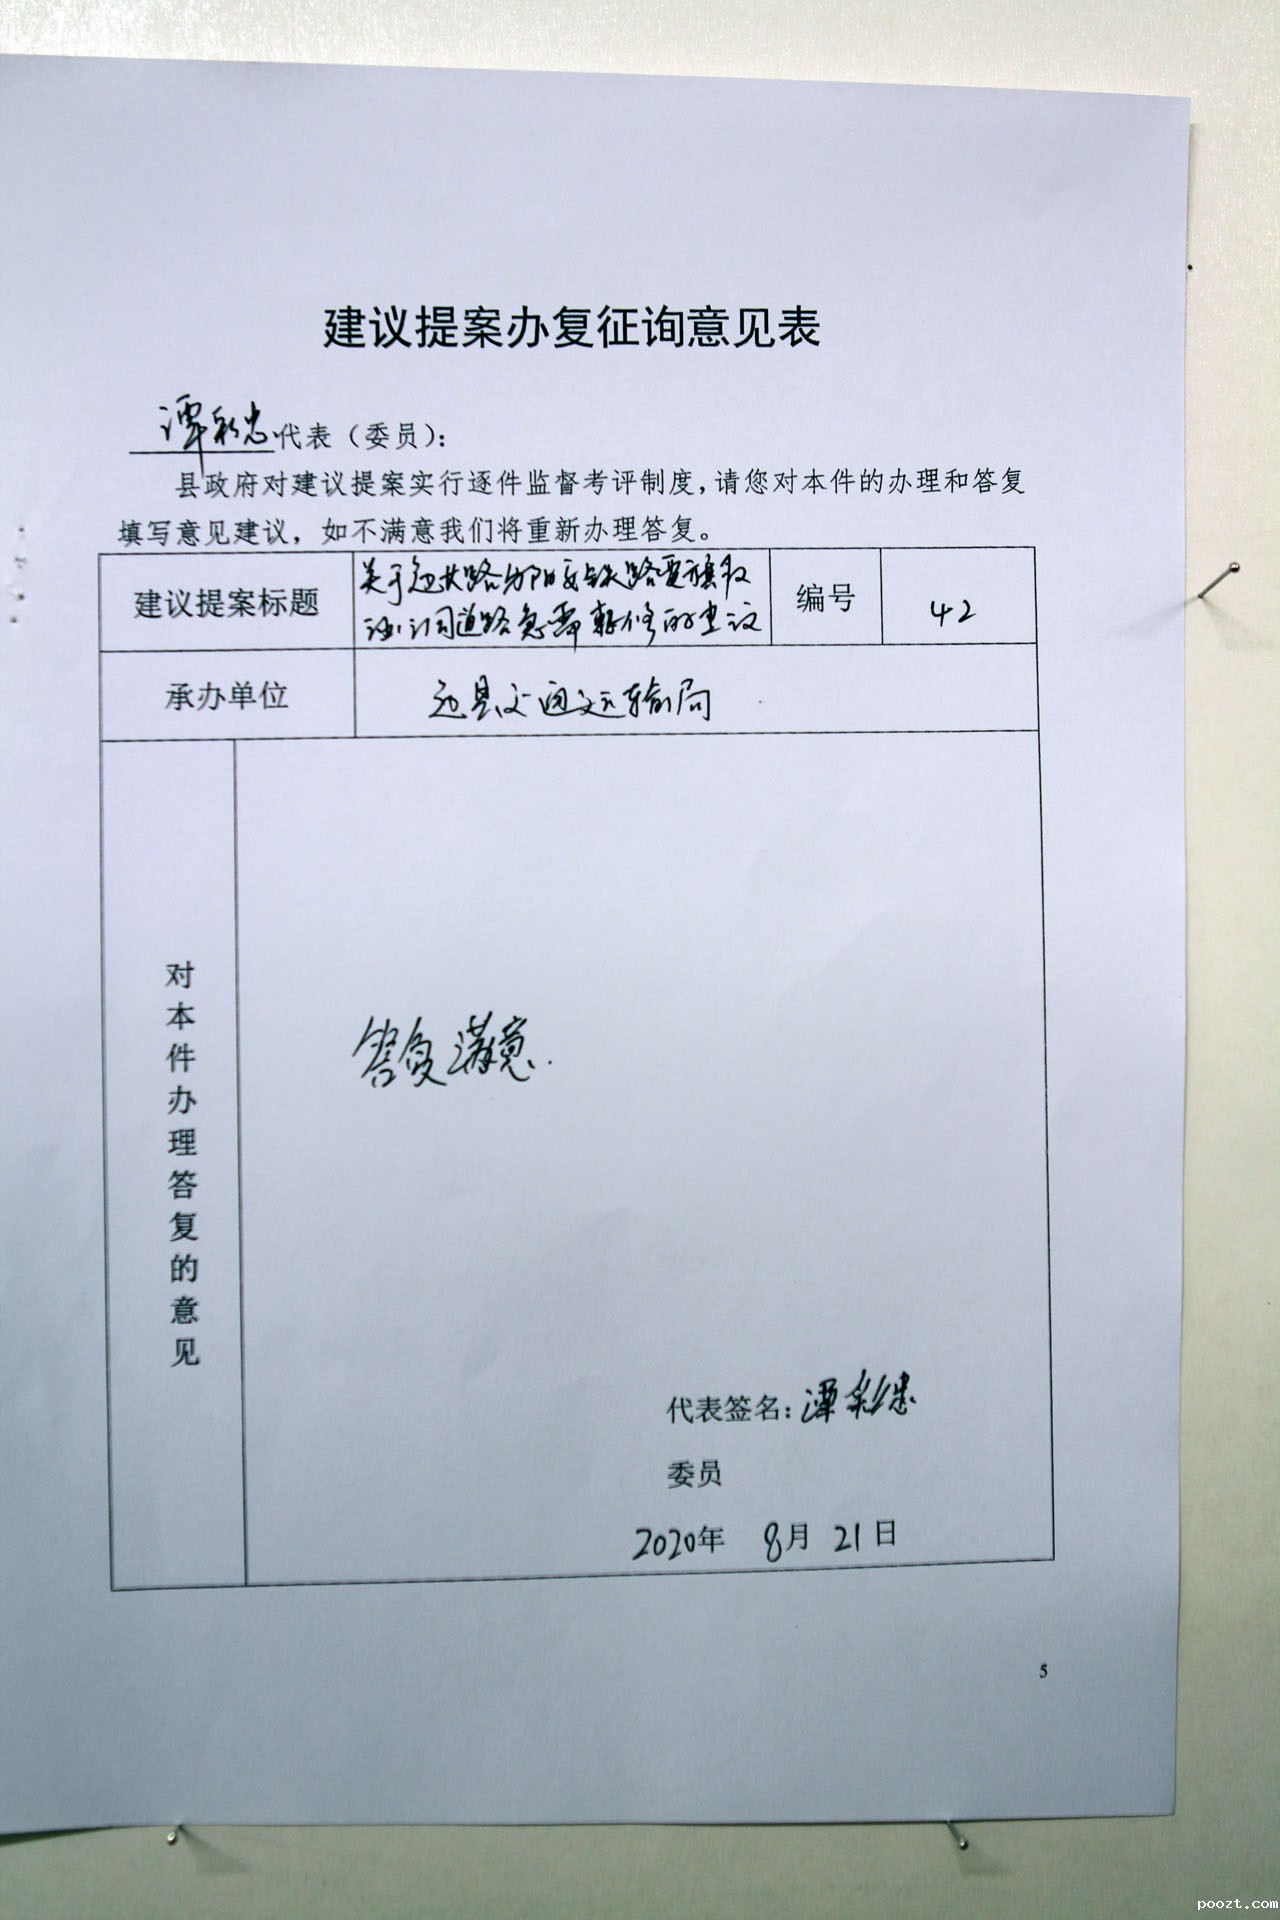 建议提案办复征询意见表
谭彩忠代表（委员）：
县政府对建议提案实行逐件监督考评制度，请您对本件的办理和答复
填写意见建议，如不满意我们将重新办理答复。
建议提案标题
关于 路 路
道路急需 修的建议
编号
42
承办单位
县交通运输局
对本件办理答复的意见
答复满意.
代表签名：谭彩忠
委员
2020年 8月 21日
5
poozt.com